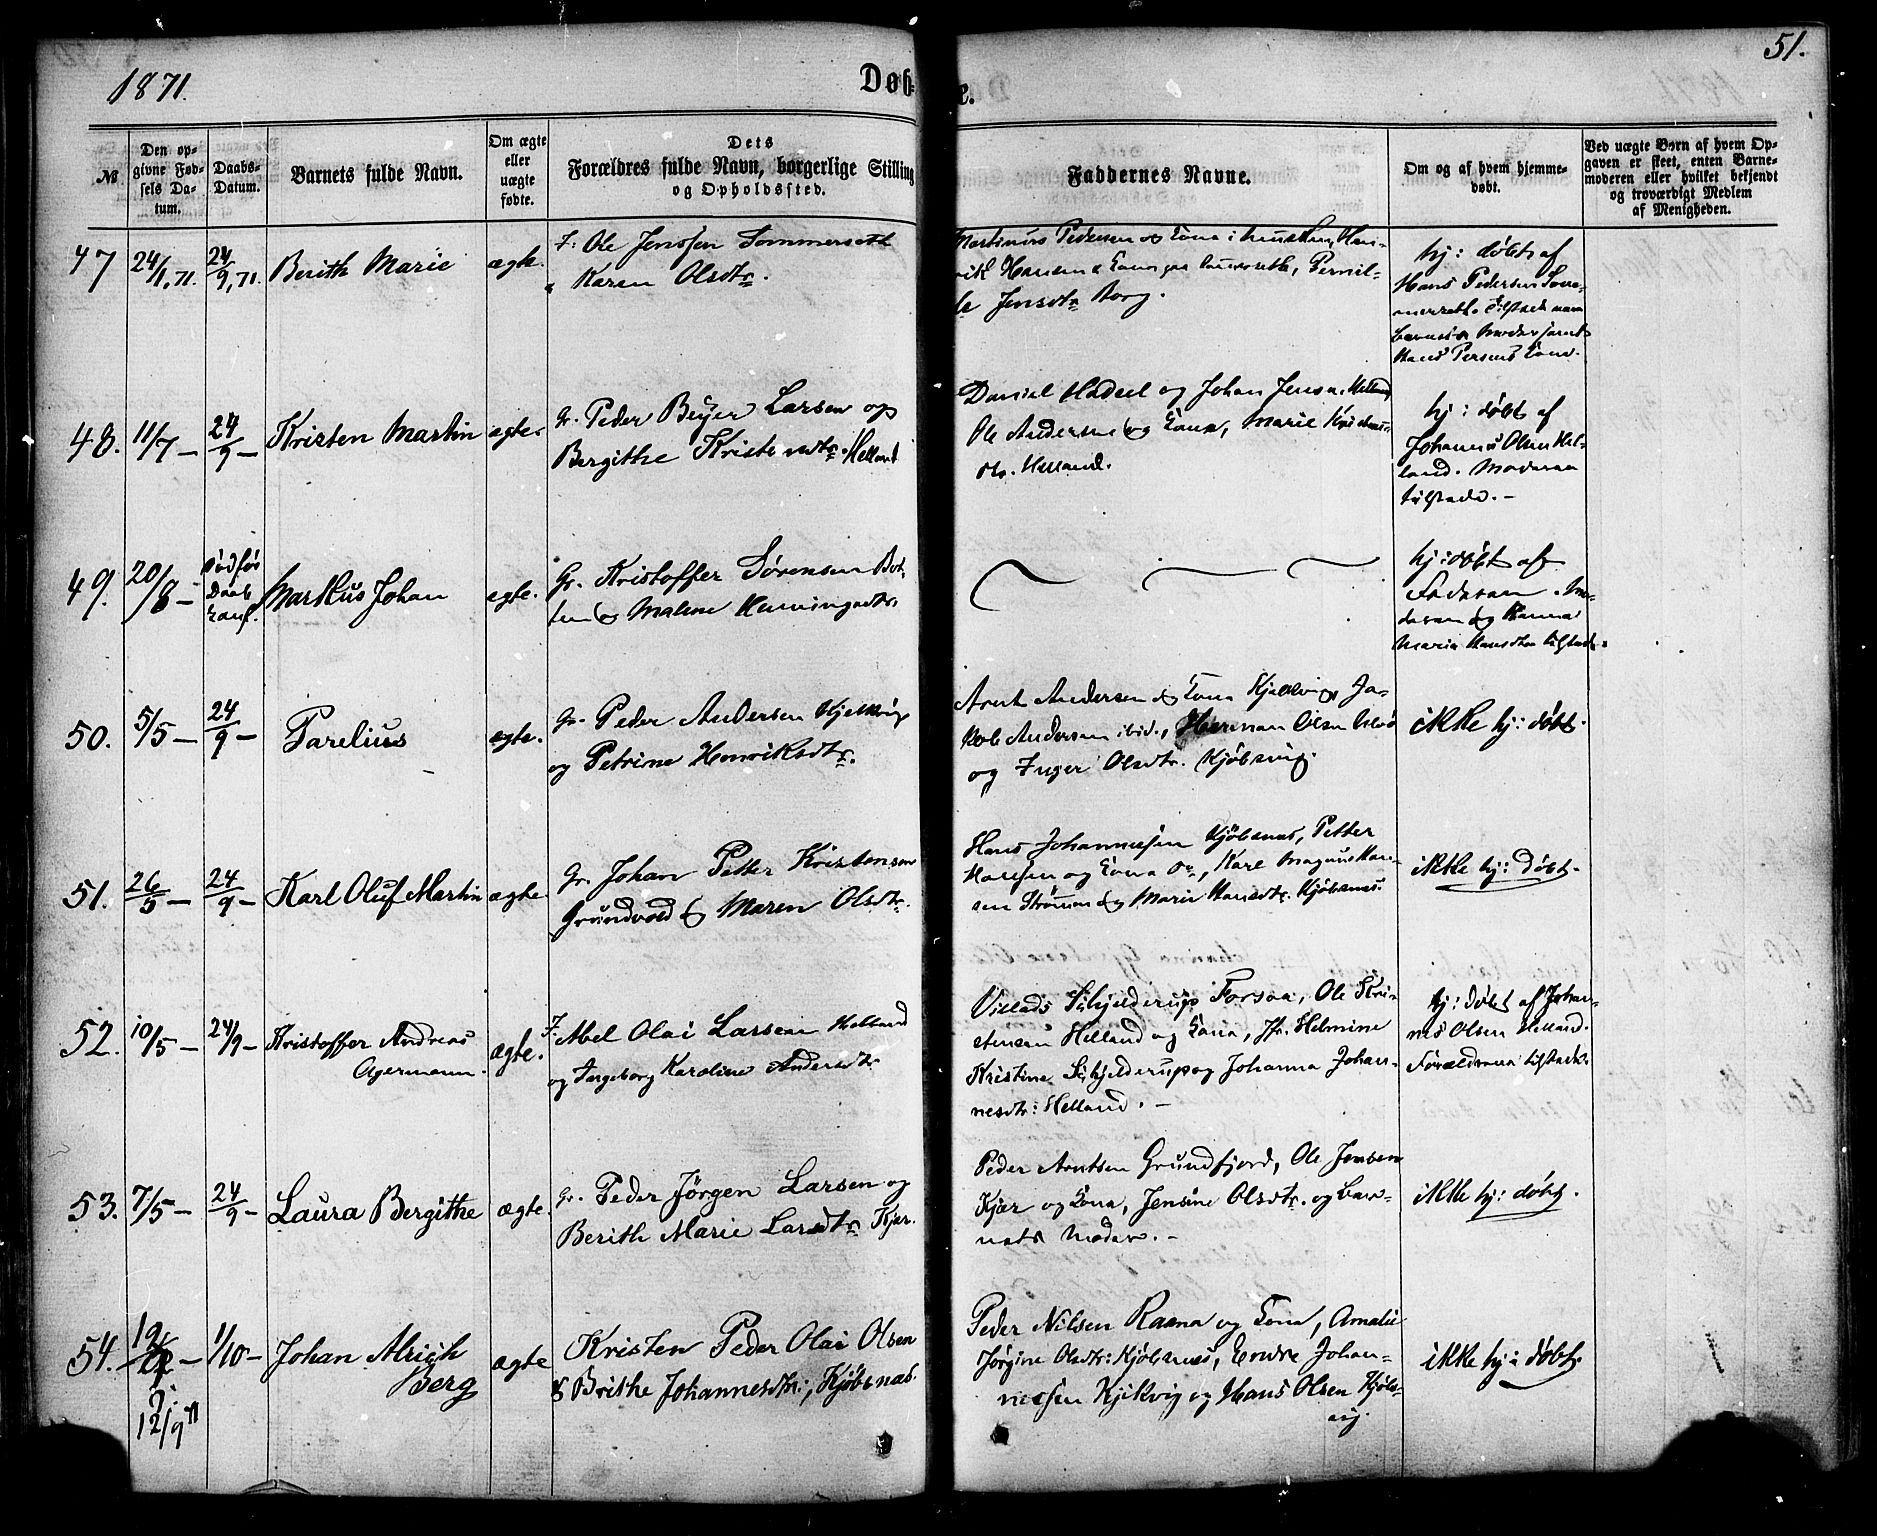 1871.
Døb-
e.
51.
№
Den op-
givne Fød-
sels Da-
tum.
Daabs-
Datum.
Barnets fulde Navn.
Om ægte
eller
uægte
fødte.
Dets
Forældres fulde Navn, borgerlige Stilling
og Opholdssted.
Faddernes Navne.
Om og af hvem hjemme-
døbt.
Ved uægte Børn af hvem Op-
gaven er skeet, enten Barne-
moderen eller hvilket bekjendt
og troværdigt Medlem
af Menigheden.
47 24/1, 71. 24/9, 71. Berith Marie ægte.
F: Ole Jenssen Sommerseth
Karen Olsdtr.
Martinus Pedersen og Kona
Hansen & Kona Pernil-
le Jensdtr Borg.
hj: døbt af
Hans Pedersen Som-
merseth. Tilstede var
Barnets Moder samt
Hans Persens Kone.
48. 11/7 – 24/9 – Kristen Martin ægte.
Gr. Peder Beyer Larsen og
Bergithe Kristensdtr. Helland
Daniel Hadsel og Johan Jensen, Helland
Ole Andersen og Kona, Marie
Helland.
hj: døbt af
Johannes Olsen Hel-
land. Moderen
tilstede. –
49. 20/8 – død før
Daab
Markus Johan ægte.
Gr. Kristoffer Sørensen Bot-
ten og Malene Henningsdtr.
hj: døbt af
Faderen. Mo-
deren og Hanna
Maria Hansdtr tilstede.
50. 5/5 – 24/9 – Parelius ægte.
Gr. Peder Andersen Kjelkvig
og Petrine Henriksdtr.
Arnt Andersen og Kona Kjelkvig, Ja-
kob Andersen ibid., Herman Olsen
og Inger Olsdtr. Kjøbsvig.
ikke hj: døbt.
51. 26/5 – 24/9 – Karl Oluf Martin ægte
Gr. Johan Petter Kristensen
Grundvold & Maren Olsdtr.
Hans Johannesen Kjøbsnes, Petter
Hansen og Kona Karl Magnus Han-
sen Strømen og Marie Hansdtr. Kjøbsnes.
ikke hj: døbt.
52. 10/5 – 24/9 – Kristoffer Andreas
Agermann. ægte.
F. Abel Olai Larsen Helland
og Ingeborg Karoline Andersdtr
Villads Schjelderup Forsaa, Ole Kri-
stensen Helland og Kona, Jfr. Helmine
Kristine Schjelderup og Johanna Johan-
nesdtr: Helland. –
hj: døbt af Johan-
nes Olsen Helland.
Forældrene tilstede.
53. 7/5 – 24/9 – Laura Bergithe ægte
Gr. Peder Jørgen Larsen og
Berith Marie Larsdtr Kjær.
Peder Arntsen Grundfjord, Ole Jensen
Kjær og Kona, Jensine Olsdtr. og Bar-
nets Moder. –
ikke hj: døbt.
54. – 1/10 – Johan Alrich
Berg ægte
12/9 71
Kristen Peder Olai Olsen
& Brithe Johannesdtr:, Kjøbsnæs.
Peder Nilsen Raana og Kona, Amalie
Jørgine Olsdtr: Kjøbsnæs, Endre Johan-
nessen Kjelkvig og Hans Olsen Kjøbs-
vig.
ikke hj: døbt.